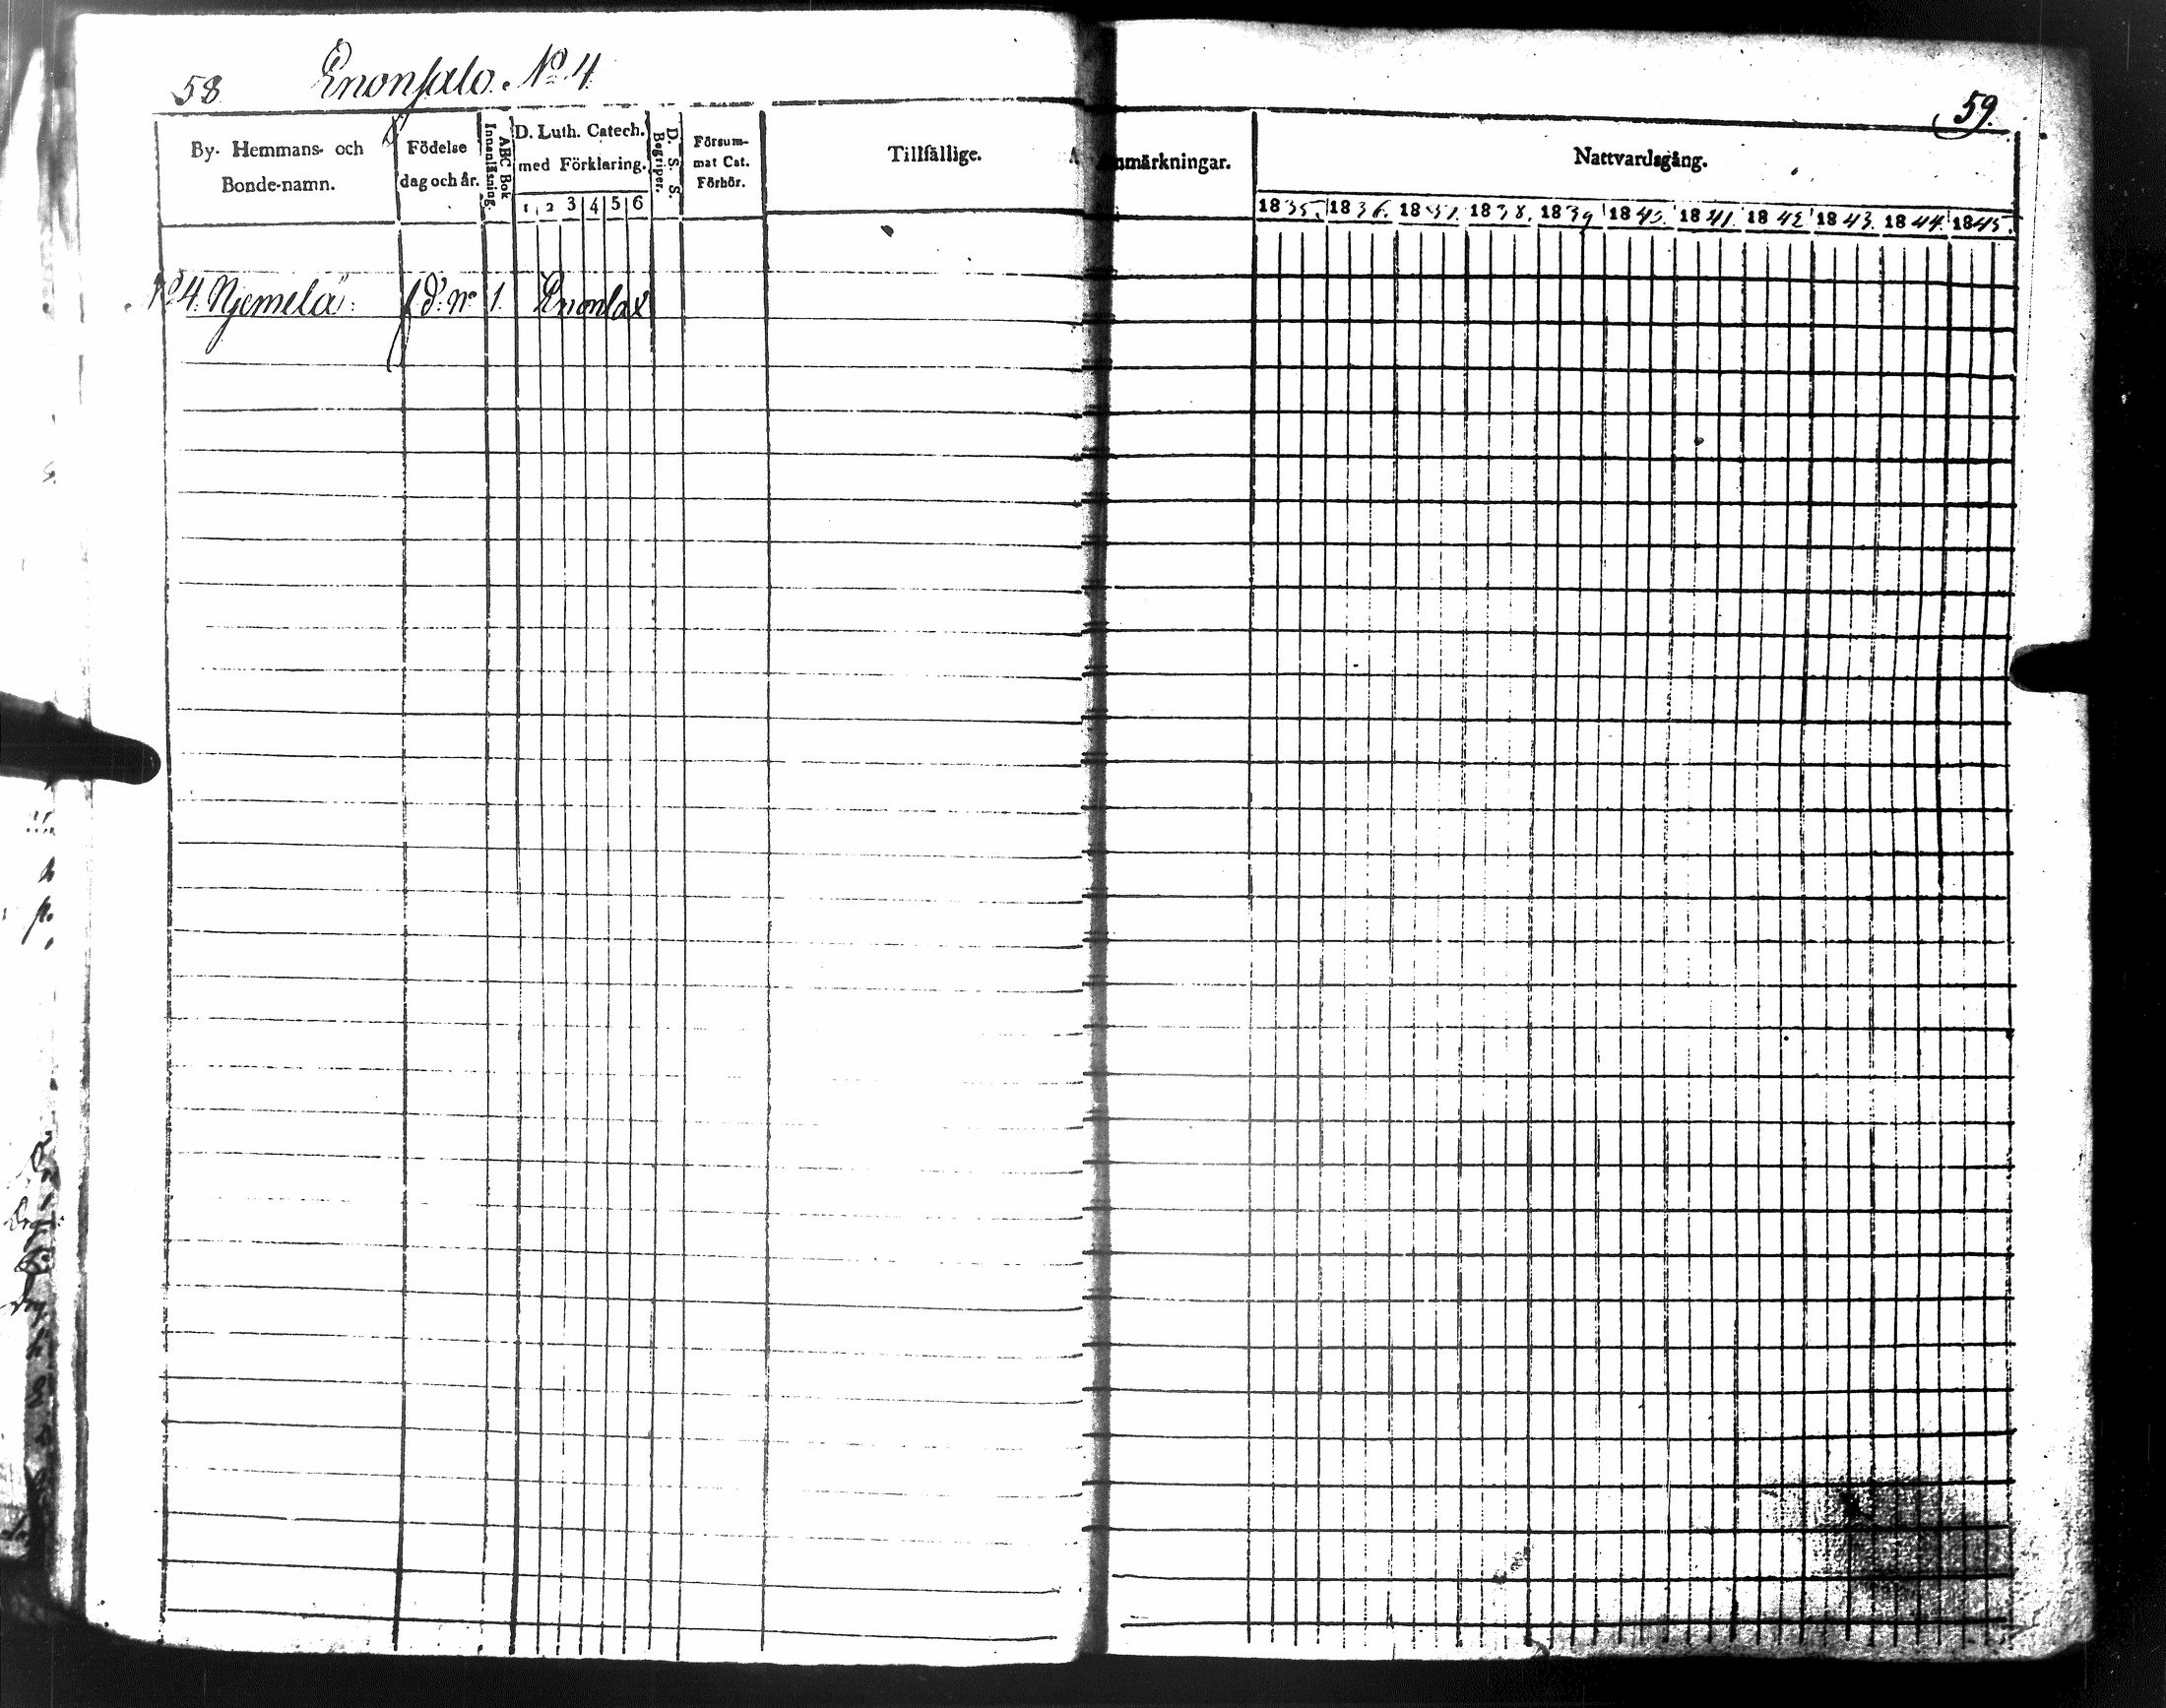 58 Enonsalo. No 4.
59.
By- Hemmans- och Bonde-namn.
Födelse dag och år.
ABC Bok Innanläsning.
D. Luth. Catech. med Förklaring.
1 2 3 4 5 6
D. S. S. Begriper.
Försum-
mat Cat.
Förhör.
Tillfällige.
Anmärkningar.
Nattvardsgång.
1835. 1836. 1837. 1838. 1839 1840. 1841. 1842 1843. 1844. 1845.
No 4. Njemelä: f. d. No 1. Enonlax